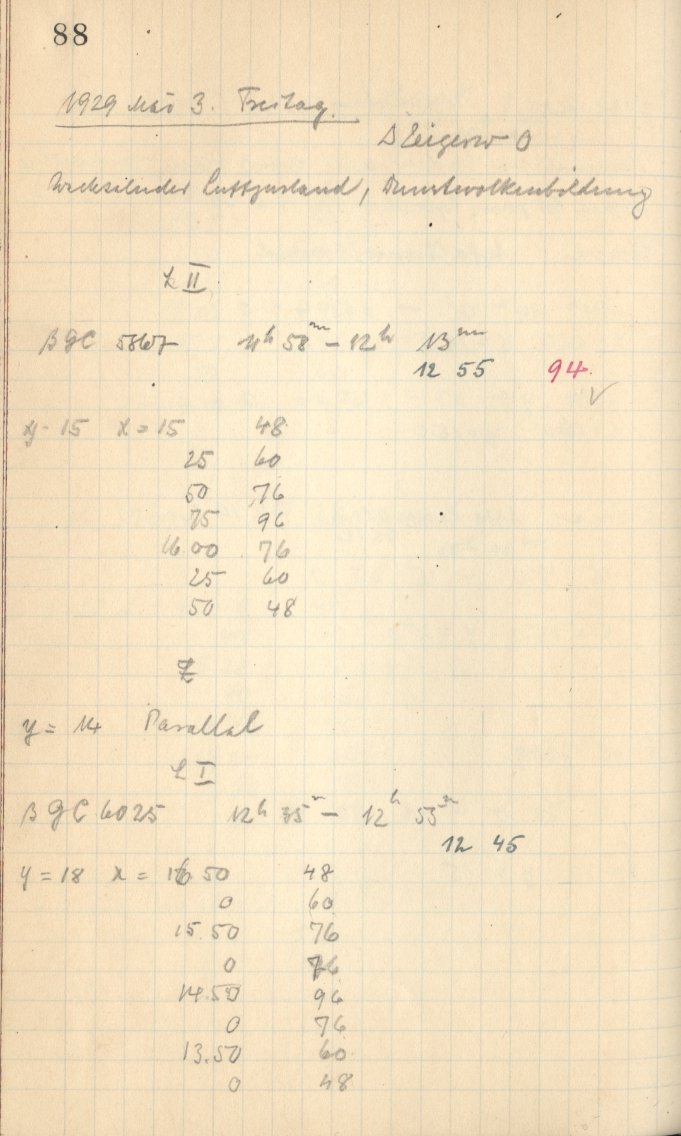 88
1929 Mai 3. Freitag.
Wechselnder Luftzustand, Dunstwolkenbildung
L II
BGC 5867 11h 58m - 12h 13m
12 55 94. √
y = 15 x = 15 48
25 60
50 76
75 96
16 00 76
25 60
50 48
y = 14 Parallel
L I
BGC 6025 12h 35m - 12h 55m
12 45
y = 18 x = 16 50 48
0 60
15.50 76
0 76
14.50 96
0 76
13.50 60
0 48